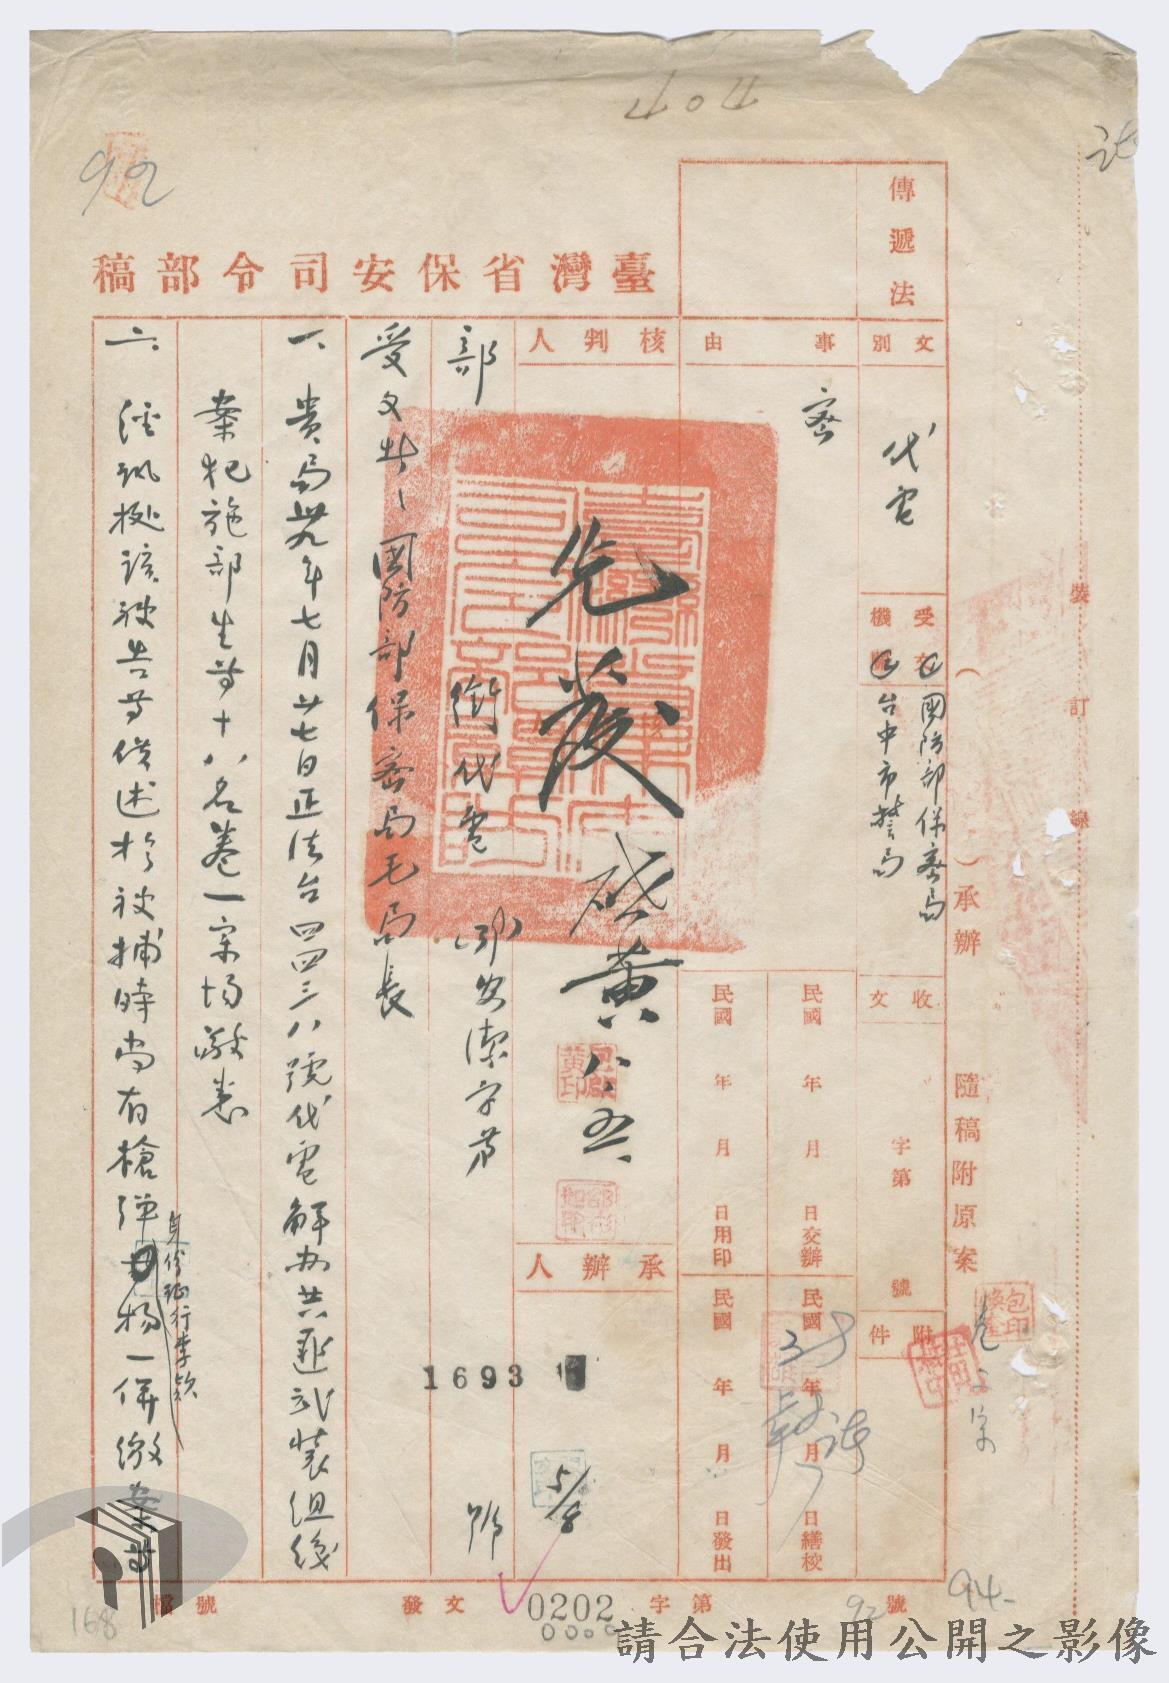 404
92
傳遞法
臺灣省保安司令部稿
文別
代電
事由
密
核判人
先發
黃
八、五
受文機關
國防部保密局
台中市警局
( )承辦
隨稿附原案
裝訂線
收文
字第
號
附件
民國 年 月 日交辦
民國 年 月 日繕校
民國 年 月 日用印
民國 年 月 日發出
承辦人
5/8
部銜代電
安潔字第
1693
號
受文者:國防部保密局毛局長
一、貴局卅九年七月廿七日正法台四四三八號代電解办共匪武裝組織
案犯施部生等十八名卷一宗均敬悉
二、經訊據該被告等供述於被捕時尚有槍彈
身份證行李款
一併繳案等
檔號
發文
0202
字第
92
號
94-
168
請合法使用公開之影像